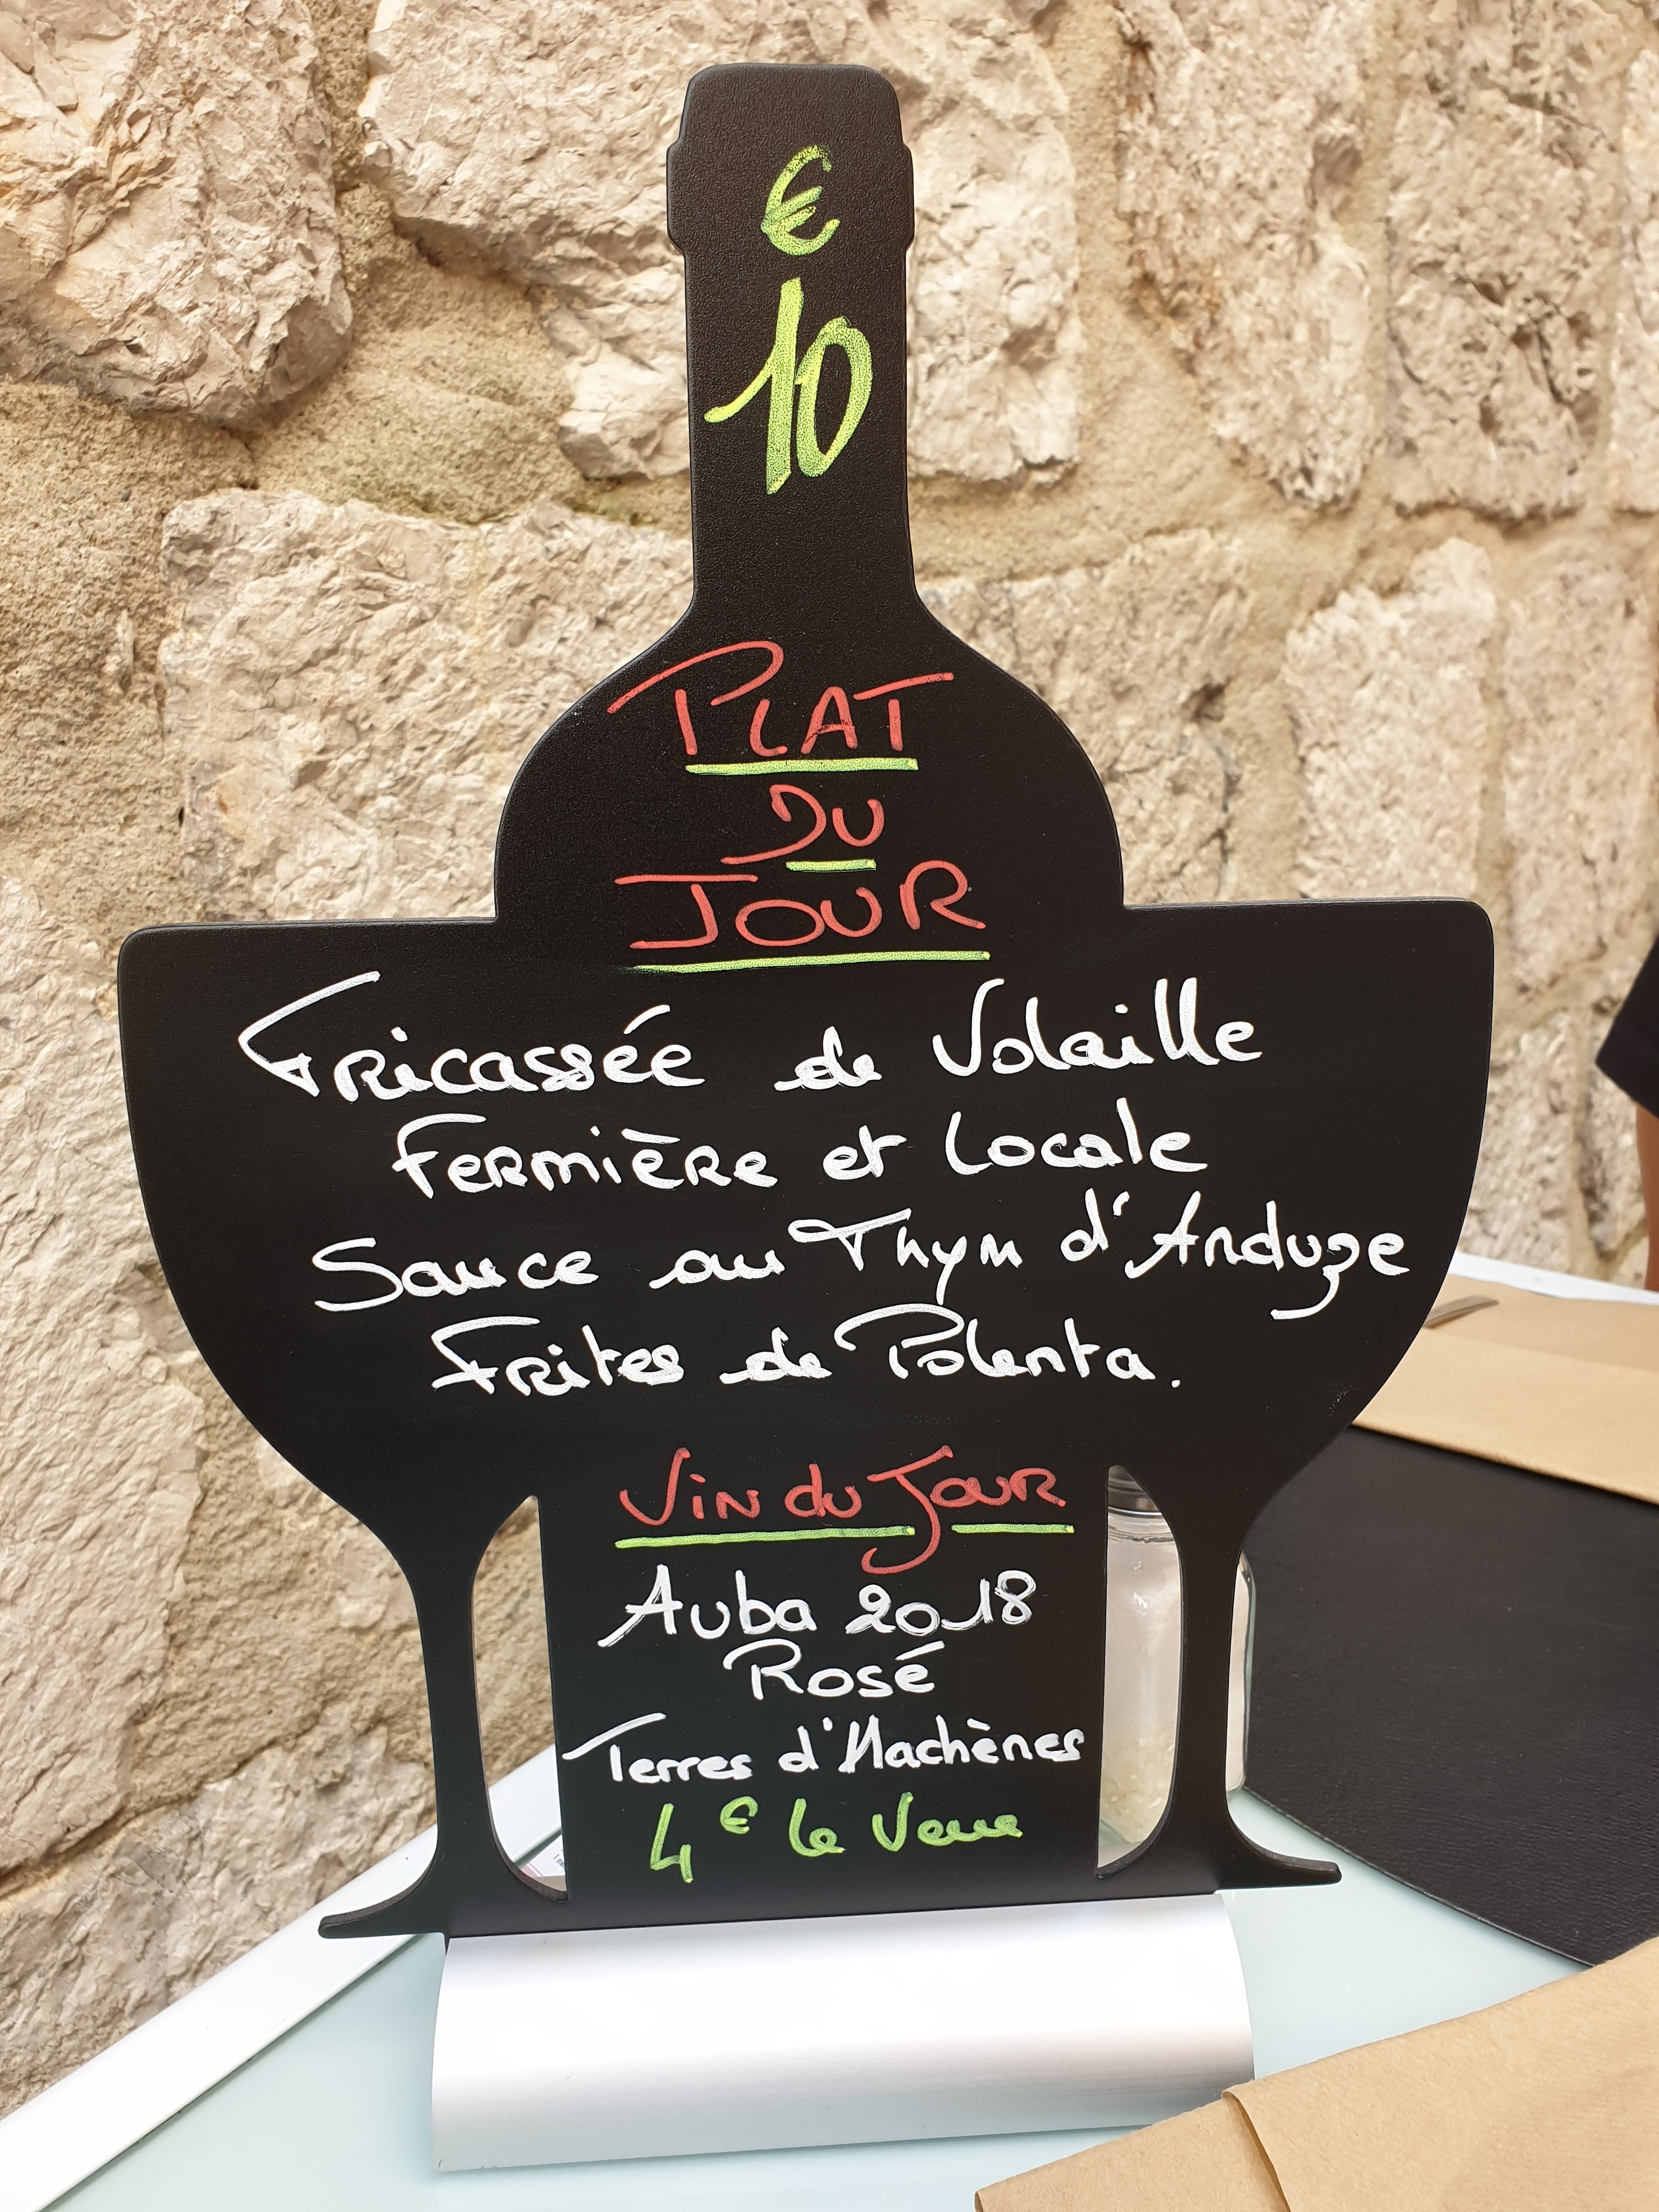 €
10
PLAT
DU
JOUR
Fricassée de Volaille
Fermière et Locale
Sauce au Thym d'Anduze
Frites de Polenta.
Vin du Jour
Auba 2018
Rosé
Terres d'Hachènes
4€ le Verre